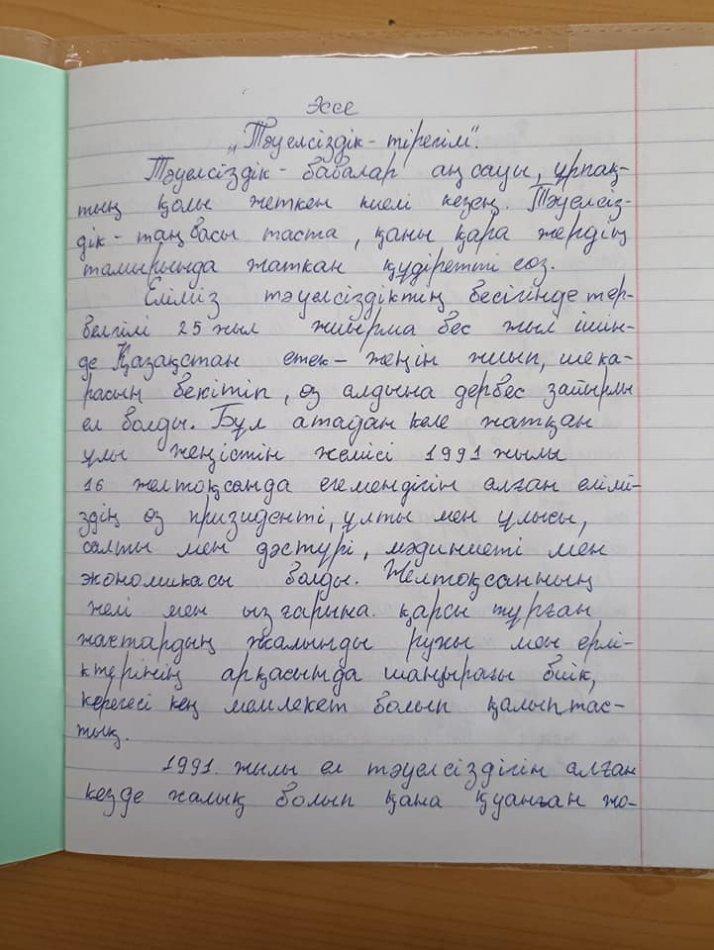 Эссе
„Тәуелсіздік - тірегім".
Тәуелсіздік - бабалар аңсауы, ұрпақ-
тың қолы жеткен киелі кезең. Тәуелсіз-
дік - таңбасы таста, қаны қара жердің
тамырында жаткан құдіретті сөз.
Еліміз тәуелсіздіктің бесігінде тер-
белгілі 25 жыл жиырма бес жыл ішін-
де Қазақстан етек – жеңін жиып, шека-
расын бекітіп, өз алдына дербес зайырлы
ел болды. Бұл атадан келе жатқан
ұлы жеңістін жемісі 1991 жылы
16 желтоқсанда егемендігін алған елімі-
здің өз призиденті, ұлты мен ұлысы,
салты мен дәстүрі, мәдиниеті мен
экономикасы болды. Желтоқсанның
желі мен ызғарына қарсы тұрған
жастардың жалынды рухы мен ерлі-
ктерінің арқасында шаңырағы биік,
керегесі кең мемлекет болып қалыптас-
тық.
1991. жылы ел тәуелсіздігін алған
кезде халық болып қана қуанған жо-